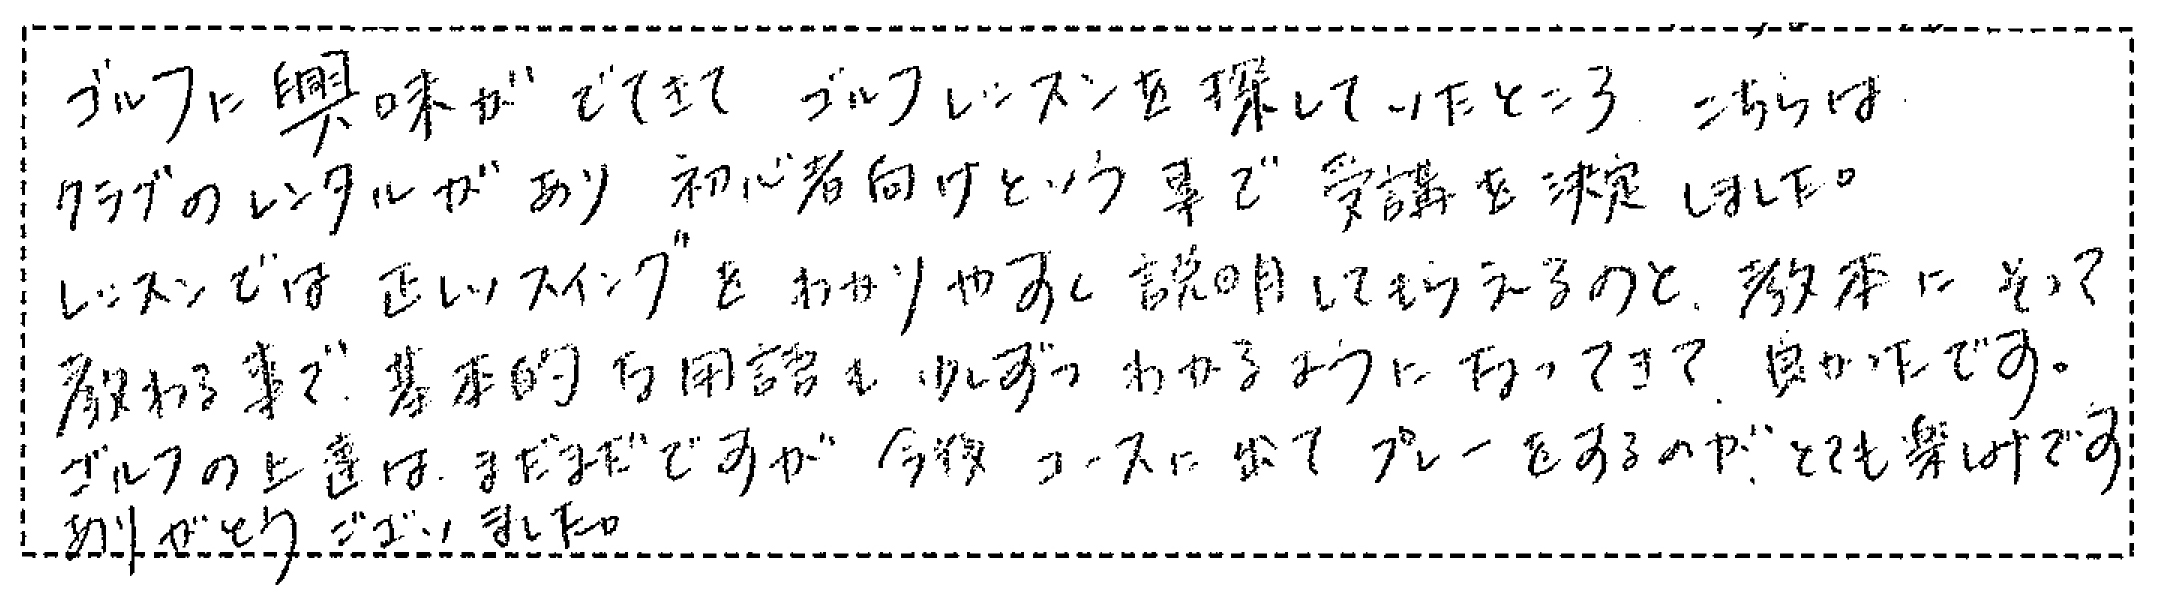 ゴルフに興味がでてきて ゴルフレッスンを探していたところ、こちらは
クラブのレンタルがあり 初心者向けという事で 受講を決定しました。
レッスンでは 正しいスイングを わかりやすく 説明してもらえるのと、教本にそって
教わる事で、基本的な用語も 少しずつ わかるようになってきて、良かったです。
ゴルフの上達は、まだまだですが 今後 コースに出て プレーをするのが、とても楽しみです
ありがとうございました。